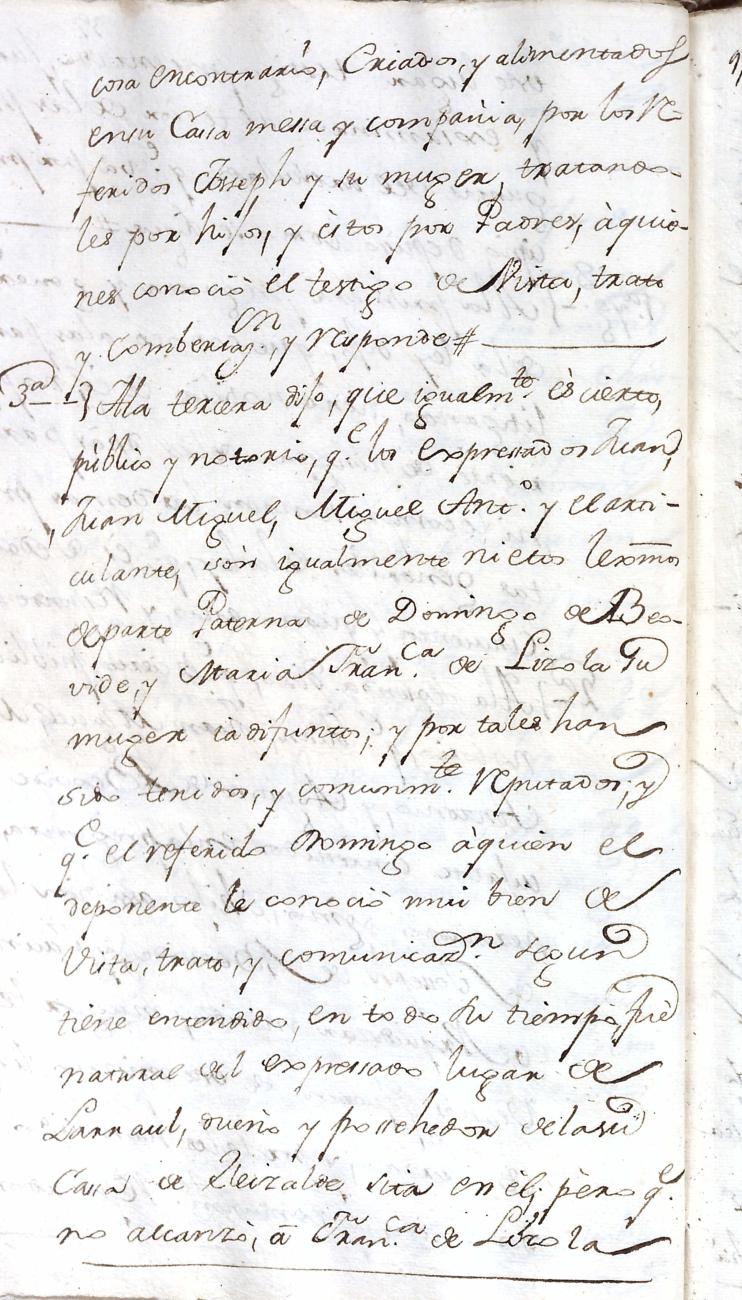 cosa encontrario, Criados, y alimentados
en su Cassa messa y compañia, por los re-
feridos Joseph y su muger, tratando-
les por hijos, y èstos por Padres, à quie-
nes conociò el testigo de Vista, trato
y combersaz.on, y responde #
3a } A la tercera dijo, que igualm.te ès cierto,
pùblico y notorio, q.e los expressados Juan,
Juan Miguel, Miguel Ant.o y el arti-
culante, són igualmente nietos lexmos
de parte Paterna de Domingo de Beo-
vide, y Maria Fran.ca de Lizola su
muger ia difuntos; y por tales han
sido tenidos, y comunm.te reputados; y
q.e el referido Domingo à quien el
deponente le conociò mui bien de
Vista, trato, y comunicaz.n segun
tiene entendido, en todo su tiempo, fuè
natural del expressado lugar de
Larraul, dueño y possehedor de la su
Cassa de Reizalde, sita en èl; pèro q.e
no alcanzò, à Fran.ca de Lizola